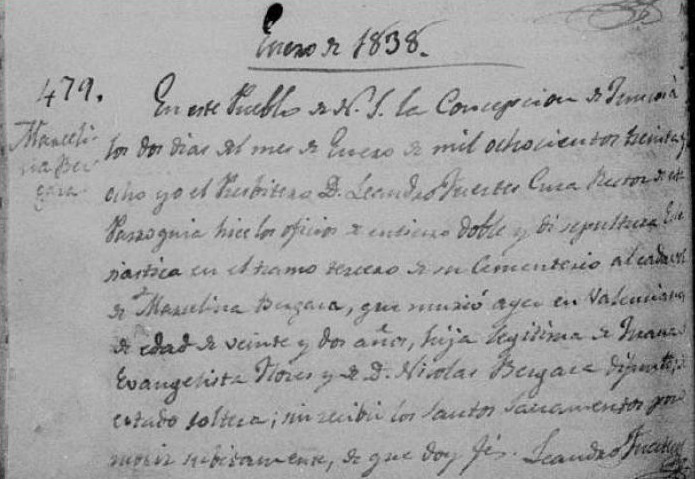 Enero de 1838.
479.
Marceli-
na Ber-
gara
En este Pueblo de N. S. la Concepcion de à
los dos dias del mes de Enero de mil ochocientos treinta y
ocho yo el Presbitero D. Leandro Fuertes Cura Rector de
Parroquia hice los oficios de entierro doble y di sepultura
siastica en el tramo tercero de su Cementerio al cadaver
de Marselina Bergara, que murió ayer en Valenciana
de edad de veinte y dos años, hija legitima de Juana
Evangelista Flores y de D. Nicolas Bergara difunto,
estado soltera; sin recibir los Santos Sacramentos por
morir subitamente, de que doy fé. Leandro Fuertes